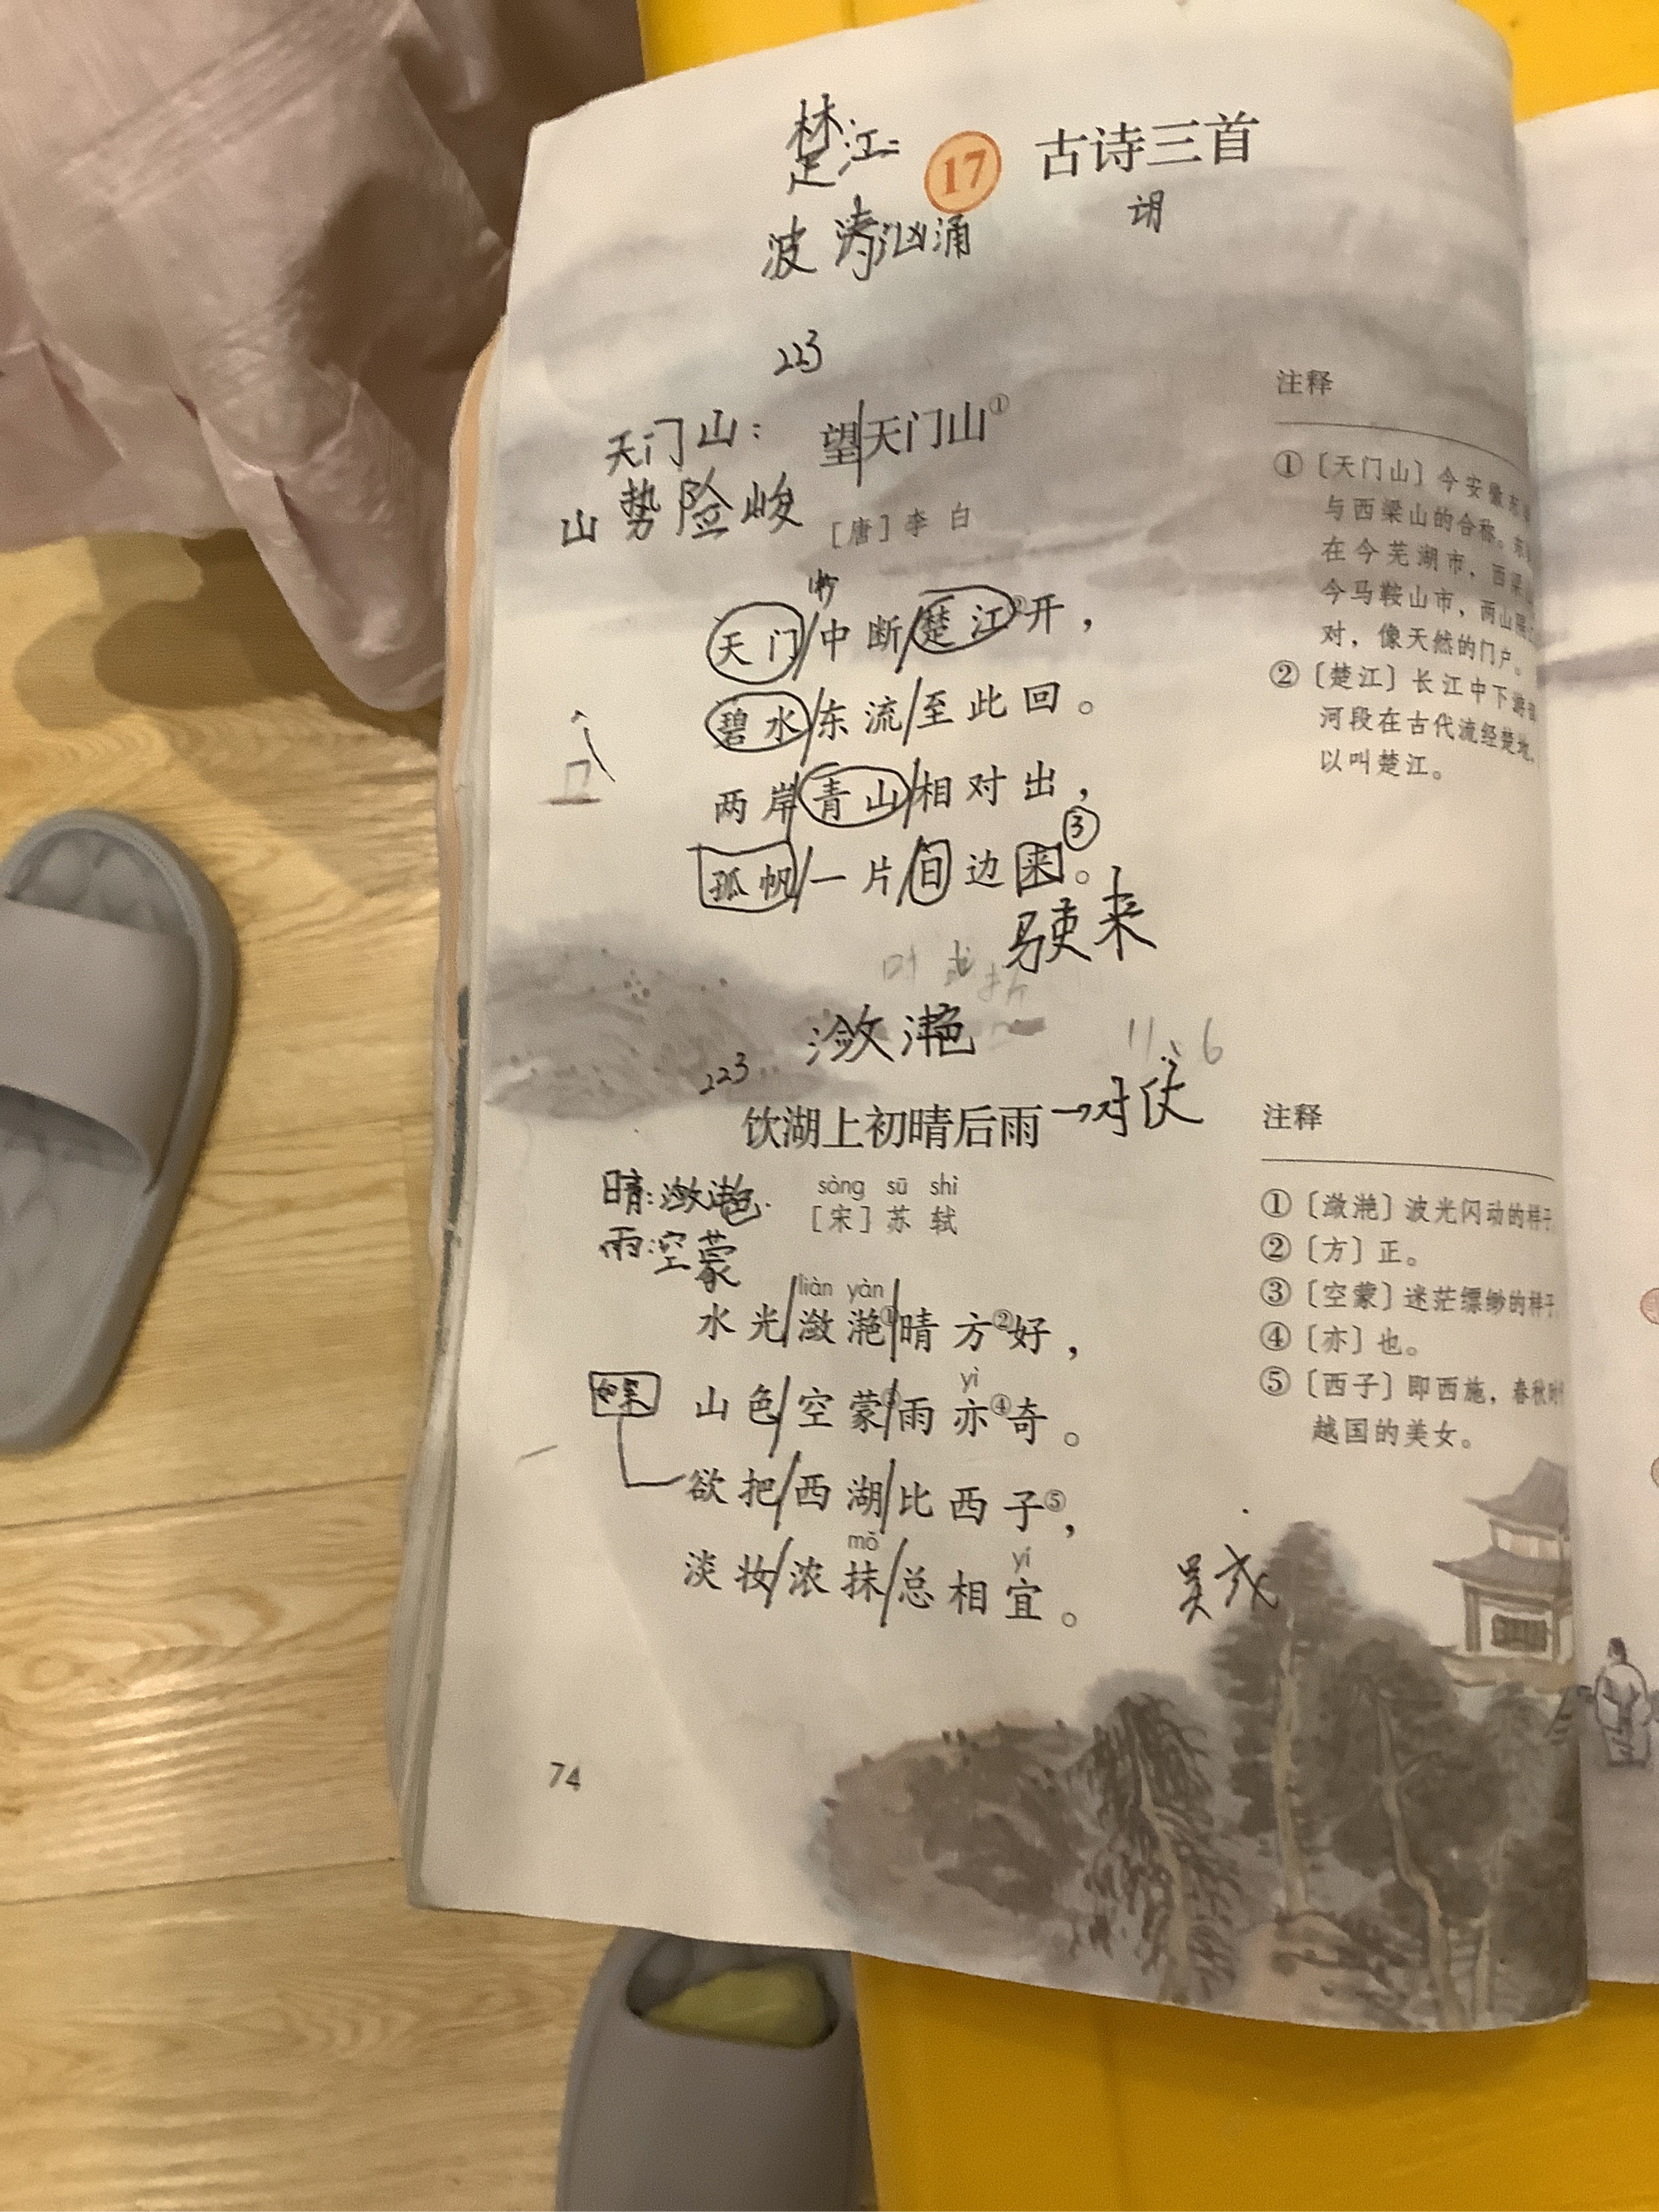 楚江：
17 古诗三首
波涛汹涌
223
天门山：
山势险峻
望天门山①
［唐］李白
天门中断楚江②开，
碧水东流至此回。
两岸青山相对出，
孤帆一片日边来③。
驶来
注释
①〔天门山〕今安徽东
与西梁山的合称。东
在今芜湖市，西梁
今马鞍山市，两山隔
对，像天然的门户。
②〔楚江〕长江中下游
河段在古代流经楚地，
以叫楚江。
潋滟
11、6
223
饮湖上初晴后雨→对仗
晴：潋滟
雨：空蒙
sòng sū shì
［宋］苏轼
liàn yàn
水光潋滟①晴方②好，
yì
山色空蒙③雨亦④奇。
如果
欲把西湖比西子⑤，
mǒ yí
淡妆浓抹总相宜。
注释
①〔潋滟〕波光闪动的样子
②〔方〕正。
③〔空蒙〕迷茫缥缈的样子
④〔亦〕也。
⑤〔西子〕即西施，春秋时
越国的美女。
74